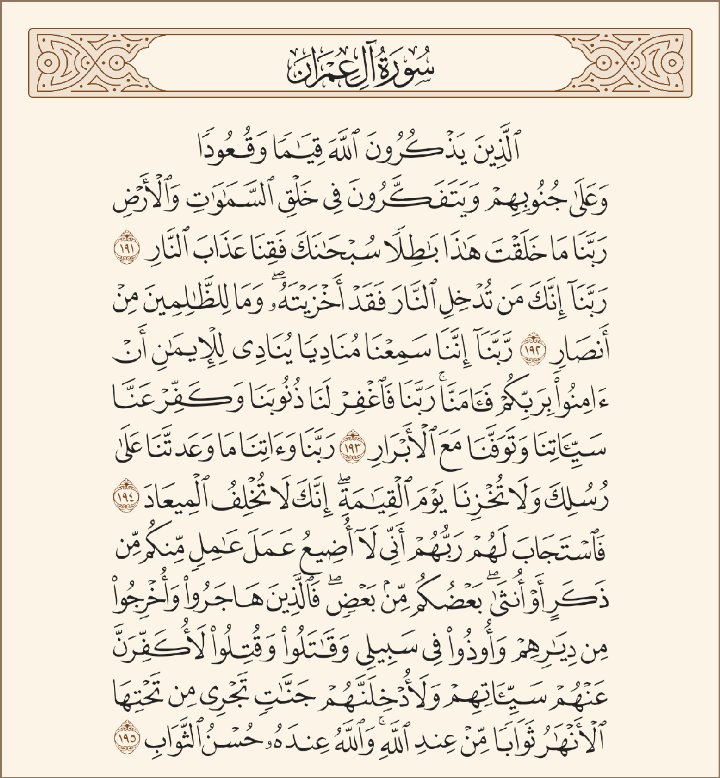 سُورَةُ آلِ عِمْرَان
ٱلَّذِينَ يَذْكُرُونَ ٱللَّهَ قِيَٰمًا وَقُعُودًا
وَعَلَىٰ جُنُوبِهِمْ وَيَتَفَكَّرُونَ فِي خَلْقِ ٱلسَّمَٰوَٰتِ وَٱلْأَرْضِ
رَبَّنَا مَا خَلَقْتَ هَٰذَا بَٰطِلًا سُبْحَٰنَكَ فَقِنَا عَذَابَ ٱلنَّارِ ١٩١
رَبَّنَآ إِنَّكَ مَن تُدْخِلِ ٱلنَّارَ فَقَدْ أَخْزَيْتَهُۥۖ وَمَا لِلظَّٰلِمِينَ مِنْ
أَنصَارٍ ١٩٢ رَّبَّنَآ إِنَّنَا سَمِعْنَا مُنَادِيًا يُنَادِي لِلْإِيمَٰنِ أَنْ
ءَامِنُوا۟ بِرَبِّكُمْ فَـَٔامَنَّاۚ رَبَّنَا فَٱغْفِرْ لَنَا ذُنُوبَنَا وَكَفِّرْ عَنَّا
سَيِّـَٔاتِنَا وَتَوَفَّنَا مَعَ ٱلْأَبْرَارِ ١٩٣ رَبَّنَا وَءَاتِنَا مَا وَعَدتَّنَا عَلَىٰ
رُسُلِكَ وَلَا تُخْزِنَا يَوْمَ ٱلْقِيَٰمَةِۖ إِنَّكَ لَا تُخْلِفُ ٱلْمِيعَادَ ١٩٤
فَٱسْتَجَابَ لَهُمْ رَبُّهُمْ أَنِّي لَآ أُضِيعُ عَمَلَ عَٰمِلٍ مِّنكُم مِّن
ذَكَرٍ أَوْ أُنثَىٰۖ بَعْضُكُم مِّنۢ بَعْضٍۖ فَٱلَّذِينَ هَاجَرُوا۟ وَأُخْرِجُوا۟
مِن دِيَٰرِهِمْ وَأُوذُوا۟ فِي سَبِيلِي وَقَٰتَلُوا۟ وَقُتِلُوا۟ لَأُكَفِّرَنَّ
عَنْهُمْ سَيِّـَٔاتِهِمْ وَلَأُدْخِلَنَّهُمْ جَنَّٰتٍ تَجْرِي مِن تَحْتِهَا
ٱلْأَنْهَٰرُ ثَوَابًا مِّنْ عِندِ ٱللَّهِۚ وَٱللَّهُ عِندَهُۥ حُسْنُ ٱلثَّوَابِ ١٩٥